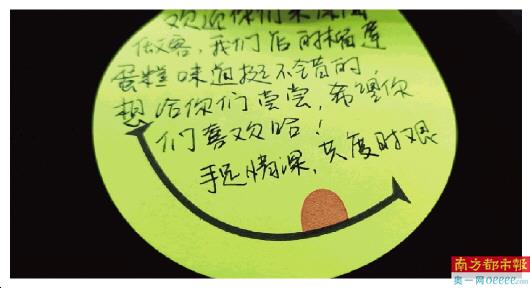 欢迎你们来
做客,我们店的榴莲
蛋糕味道挺不错的,
想给你们尝尝,希望你
们喜欢哈!
手足情深,共度时艰
南方都市报
奥一网oeeee.com